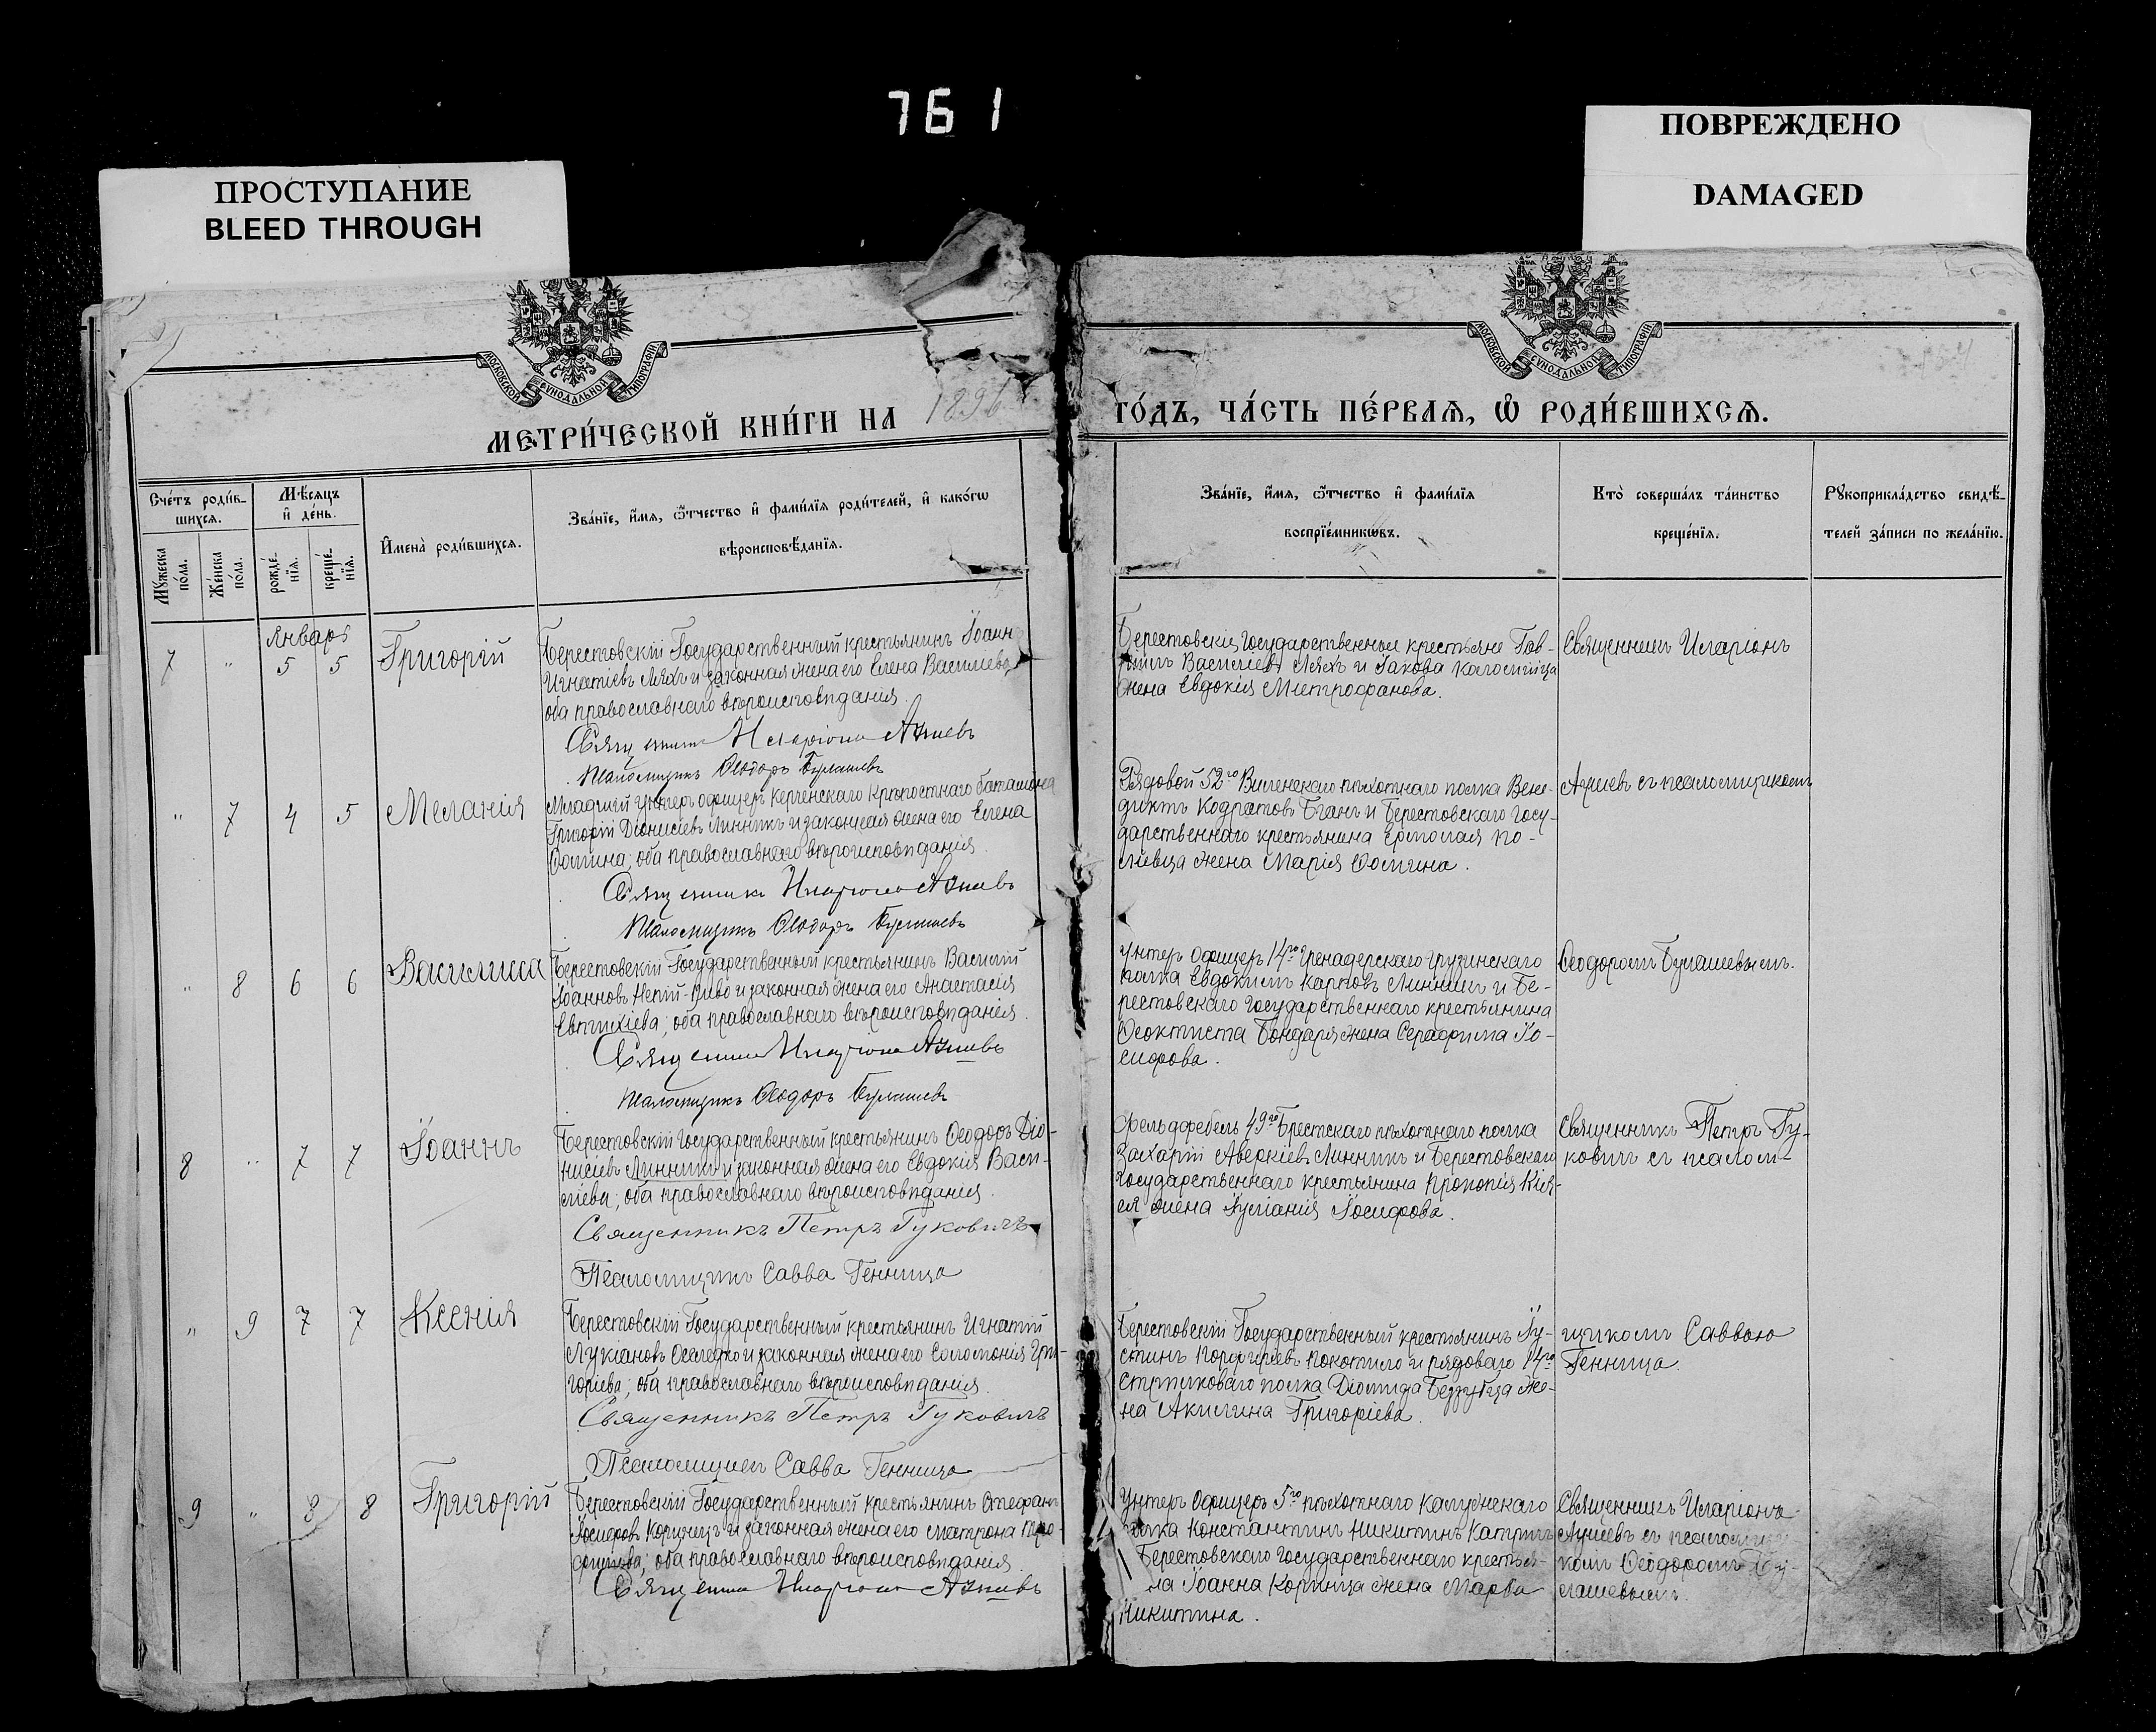 761
ПРОСТУПАНИЕ
BLEED THROUGH
ПОВРЕЖДЕНО
DAMAGED
МОСКОВСКОЙ СѴНОДАЛЬНОЙ ТИПОГРАФІИ
МОСКОВСКОЙ СѴНОДАЛЬНОЙ ТИПОГРАФІИ
МЕТРИ́ЧЕСКОЙ КНИ́ГИ НА 1896
ГО́ДЪ, ЧА́СТЬ ПЕ́РВАѦ, Ѡ҆ РОДИ́ВШИХСѦ.
Сче́тъ роди́в-
шихсѧ.
Мꙋ́жеска по́ла.
Же́нска по́ла.
Мѣ́сяцъ
и҆ де́нь.
рожде́-
нїѧ.
креще́-
нїѧ.
И҆мена̀ роди́вшихсѧ.
Зва́нїе, и҆́мѧ, ѻ҆́тчество и҆ фами́лїѧ роди́телей, и҆ како́гѡ
вѣроисповѣ́данїѧ.
Зва́нїе, и҆́мѧ, ѻ҆́тчество и҆ фами́лїѧ
воспрїе́мникѡвъ.
Кто̀ соверша́лъ та́инство
креще́нїѧ.
Рꙋкоприкла́дство свидѣ́-
телей за́писи по жела́нїю.
Января
7 " 5 5 Григорій
Берестовскій Государственный крестьянинъ Іоаннъ
Игнатіевъ Ляхъ и законная жена его Елена Василіева,
оба православнаго вѣроисповѣданія.
Священникъ Иларіонъ
Псаломщикъ Ѳеодоръ Булашевъ
Берестовскіе Государственные крестьяне Гав-
ріилъ Василіевъ Ляхъ и Іакова
жена Евдокія Митрофанова.
Священникъ Иларіонъ
" 7 4 5 Меланія
Младшій унтеръ офицеръ Керченскаго Крѣпостнаго баталіона
Григорій Діонисіевъ Линникъ и законная жена его Елена
Ѳомина; оба православнаго вѣроисповѣданія.
Священникъ Иларіонъ
Псаломщикъ Ѳеодоръ Булашевъ
Рядовой 52го Виленскаго пѣхотнаго полка Вене-
диктъ Кодратовъ и Берестовскаго Госу-
дарственнаго крестьянина Ермолая По-
жена Марія Ѳомина.
съ псаломщикомъ
" 8 6 6 Василисса
Берестовскій Государственный крестьянинъ Василій
Іоанновъ Непій-Пиво и законная жена его Анастасія
Евтихіева; оба православнаго вѣроисповѣданія.
Священникъ Иларіонъ
Псаломщикъ Ѳеодоръ Булашевъ
Унтеръ Офицеръ 14го Гренадерскаго Грузинскаго
полка Евдокимъ Карповъ Линникъ и Бе-
рестовскаго Государственнаго крестьянина
Ѳеоктиста Бондаря жена Серафима Іо-
сифова.
Ѳеодоромъ Булашевымъ.
8 " 7 7 Іоаннъ
Берестовскій Государственный крестьянинъ Ѳеодоръ Діо-
нисіевъ Линникъ и законная жена его Евдокія Васи-
ліева; оба православнаго вѣроисповѣданія.
Священникъ Петръ Гуковичъ
Псаломщикъ Савва Генница
Фельдфебель 49го Брестскаго пѣхотнаго полка
Захарій Аверкіевъ Линникъ и Берестовскаго
Государственнаго крестьянина Прокопія
жена Іуліанія Іосифова.
Священникъ Петръ Гу-
ковичъ съ псалом-
" 9 7 7 Ксенія
Берестовскій Государственный крестьянинъ Игнатій
Лукіановъ Оселедко и законная жена его Соломонія Гри-
горіева; оба православнаго вѣроисповѣданія.
Священникъ Петръ Гуковичъ
Псаломщикъ Савва Генница
Берестовскій Государственный крестьянинъ Іу-
стинъ Порфиріевъ Покотило и рядоваго 14го
стрѣлковаго полка Діомида Беззубца же-
на Акилина Григоріева.
щикомъ Саввою
Генница.
9 " 8 8 Григорій
Берестовскій Государственный крестьянинъ Стефанъ
Іосифовъ и законная жена его Матрона
оба православнаго вѣроисповѣданія
Священникъ Иларіонъ
Унтеръ Офицеръ 5го пѣхотнаго Калужскаго
полка Константинъ Никитинъ
Берестовскаго Государственнаго крестья-
на Іоанна жена Марѳа
Никитина.
Священникъ Иларіонъ
съ псаломщи-
комъ Ѳеодоромъ Бу-
лашевымъ.